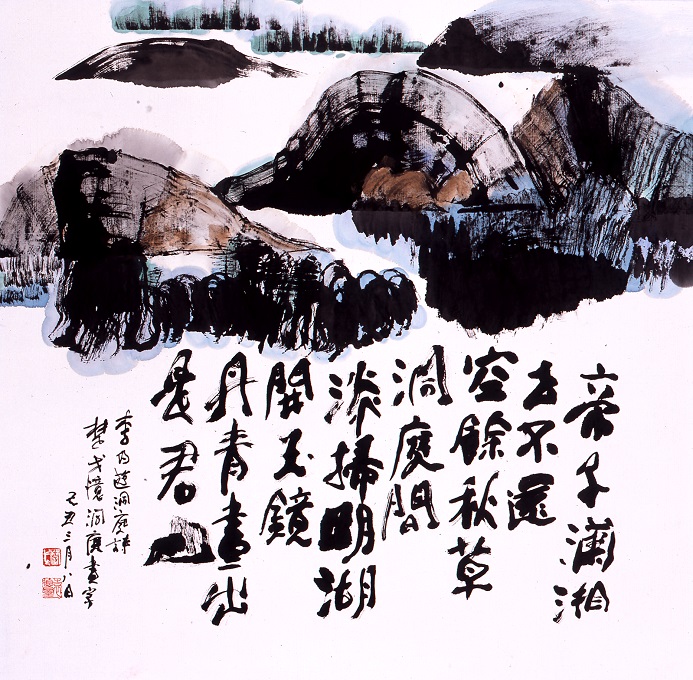 帝子瀟湘
去不還
空餘秋草
洞庭間
淡掃明湖
開玉鏡
丹青畫出
是君山
李白遊洞庭詩
楚戈憶洞庭畫字
己丑三月八日